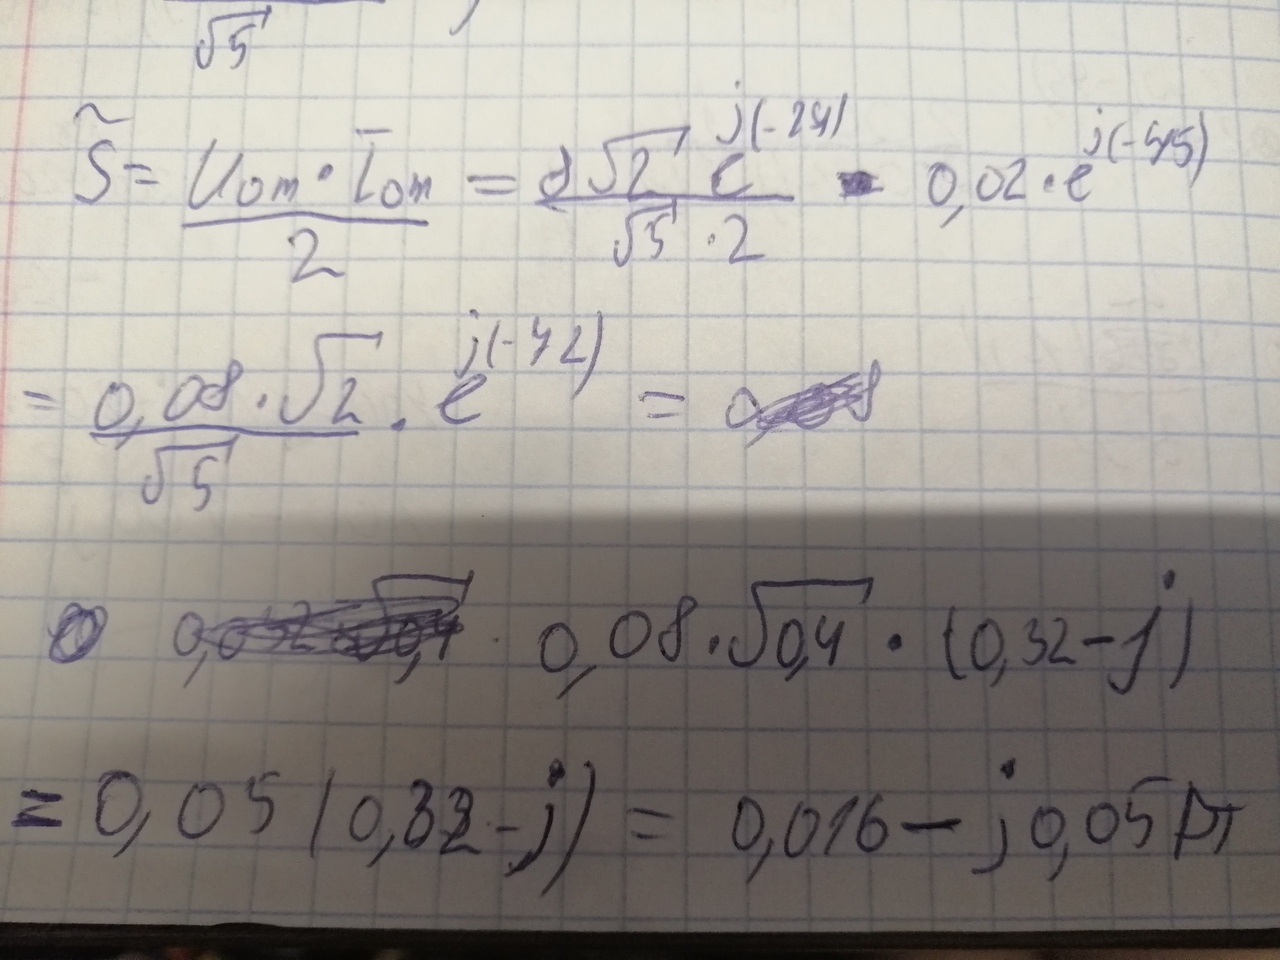 √5 ,
S̃ = U0m · I̅0m / 2 = 8√2 e^j(-27) / √5 · 2 · 0,02 · e^j(-45)
= 0,08 · √2 / √5 · e^j(-72) =
0,08 · √0,4 · (0,32 - j)
= 0,05 (0,32 - j) = 0,016 - j0,05 Вт